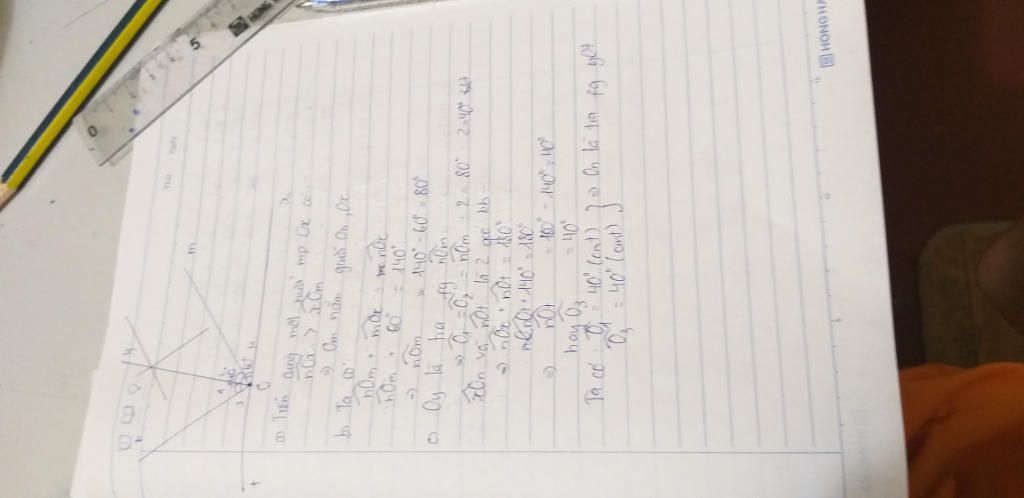 a) Trên cùng một nửa mp Ox có:
nOx > xOm
⇒ Om nằm giữa On, Ox
b) Ta có:
nOm + mOx = nOx
nOm + 60° = 140°
⇒ nOm = 140° - 60° = 80°
c) Oy là tia fg nOm
⇒ O1 = O2 = nOm : 2 = 80° : 2 = 40°
xOn và nOt là 2 góc kb
⇒ nOx + nOt = 180°
nOt + 140° = 180°
⇒ nOt = 180° - 140° = 40°
hay O3 = 40°
Ta có: O1 = 40° (cmt)
O3 = 40° (cmt)
} ⇒ On là tia fg yOt.
t
O
m
n
y
x
3
Thứ
Ngày
0
5
HONG HA
HONG HA
5
10